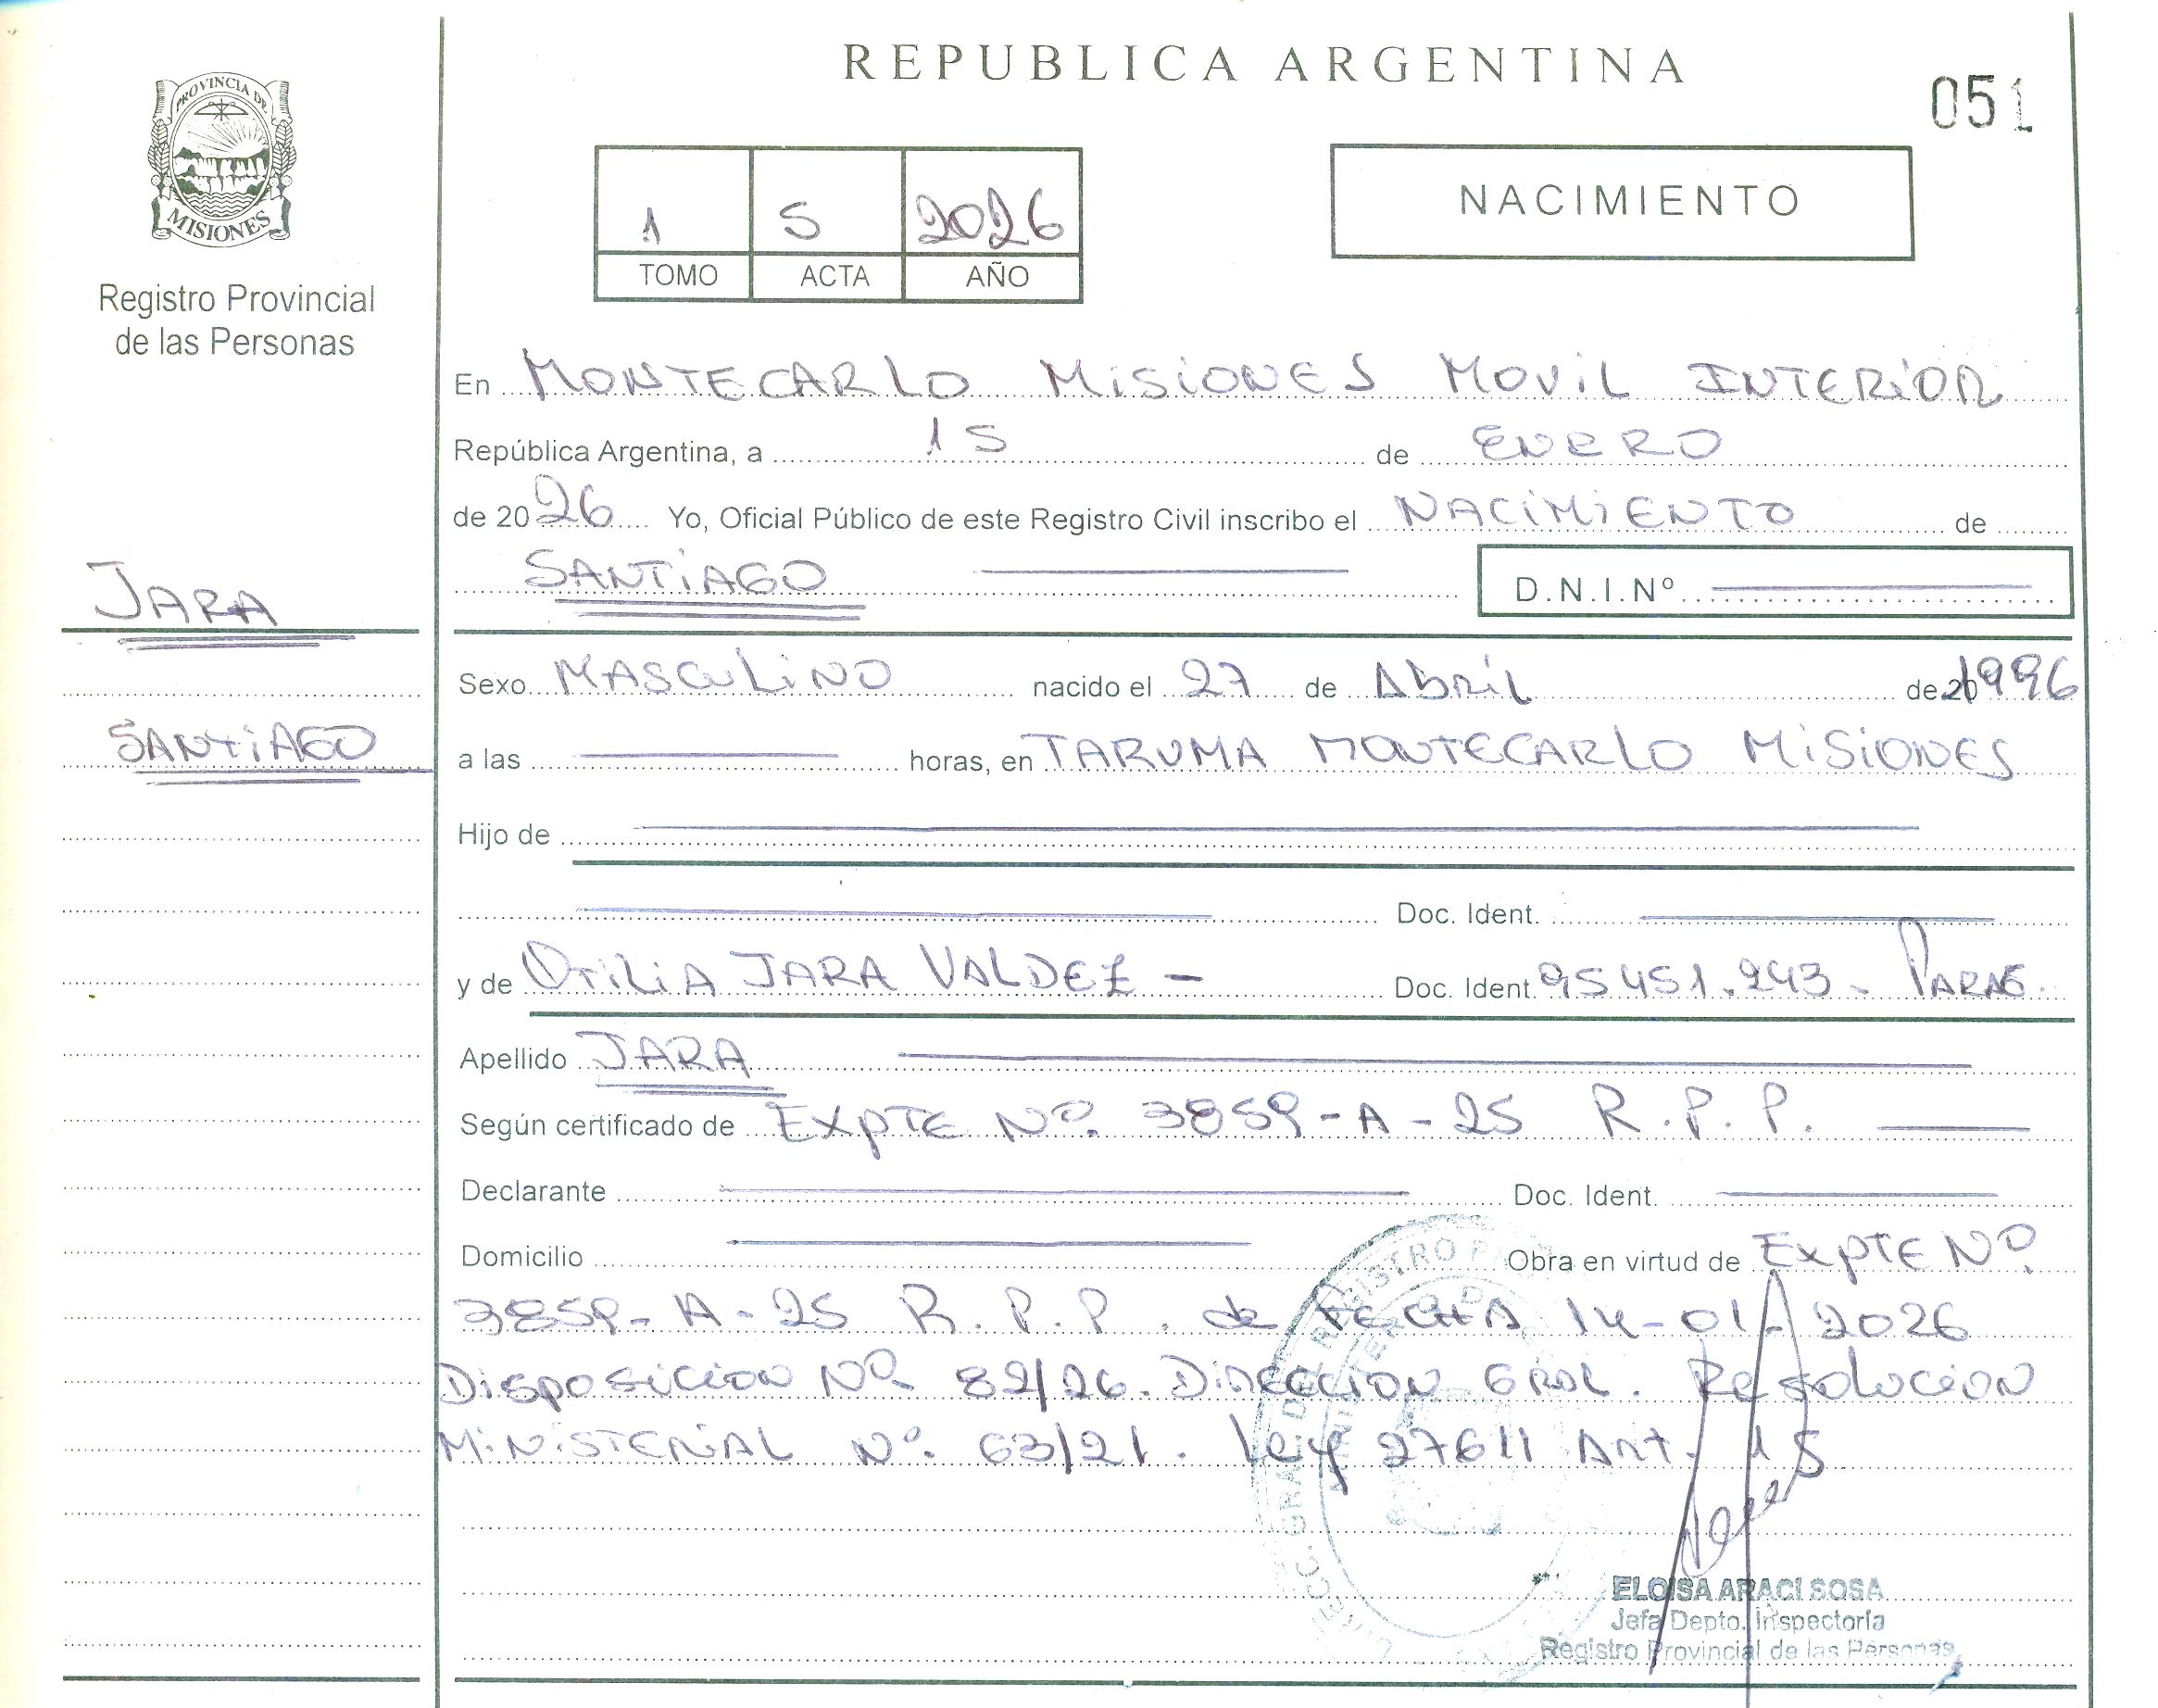 REPUBLICA ARGENTINA
051
PROVINCIA DE
MISIONES
Registro Provincial
de las Personas
1 5 2026
TOMO ACTA AÑO
NACIMIENTO
En MONTECARLO MISIONES MOVIL INTERIOR
República Argentina, a 15 de ENERO
de 2026 Yo, Oficial Público de este Registro Civil inscribo el NACIMIENTO de
SANTIAGO D.N.I.Nº
JARA
SANTIAGO
Sexo MASCULINO nacido el 27 de Abril de 1996
a las horas, en TARUMA MONTECARLO MISIONES
Hijo de
Doc. Ident.
y de OTILIA JARA VALDEZ - Doc. Ident. 95451.243. PARAG.
Apellido JARA
Según certificado de EXPTE Nº. 3859-A-25 R.P.P.
Declarante Doc. Ident.
Domicilio Obra en virtud de EXPTE Nº
3859-A-25 R.P.P. de FECHA 14-01-2026
Disposicion Nº 82/26. Direccion GRAL. Resolucion
MINISTERIAL Nº. 63/21. Ley 27611 Art. 15
ELOISA ARACI SOSA
Jefa Depto. Inspectoría
Registro Provincial de las Personas